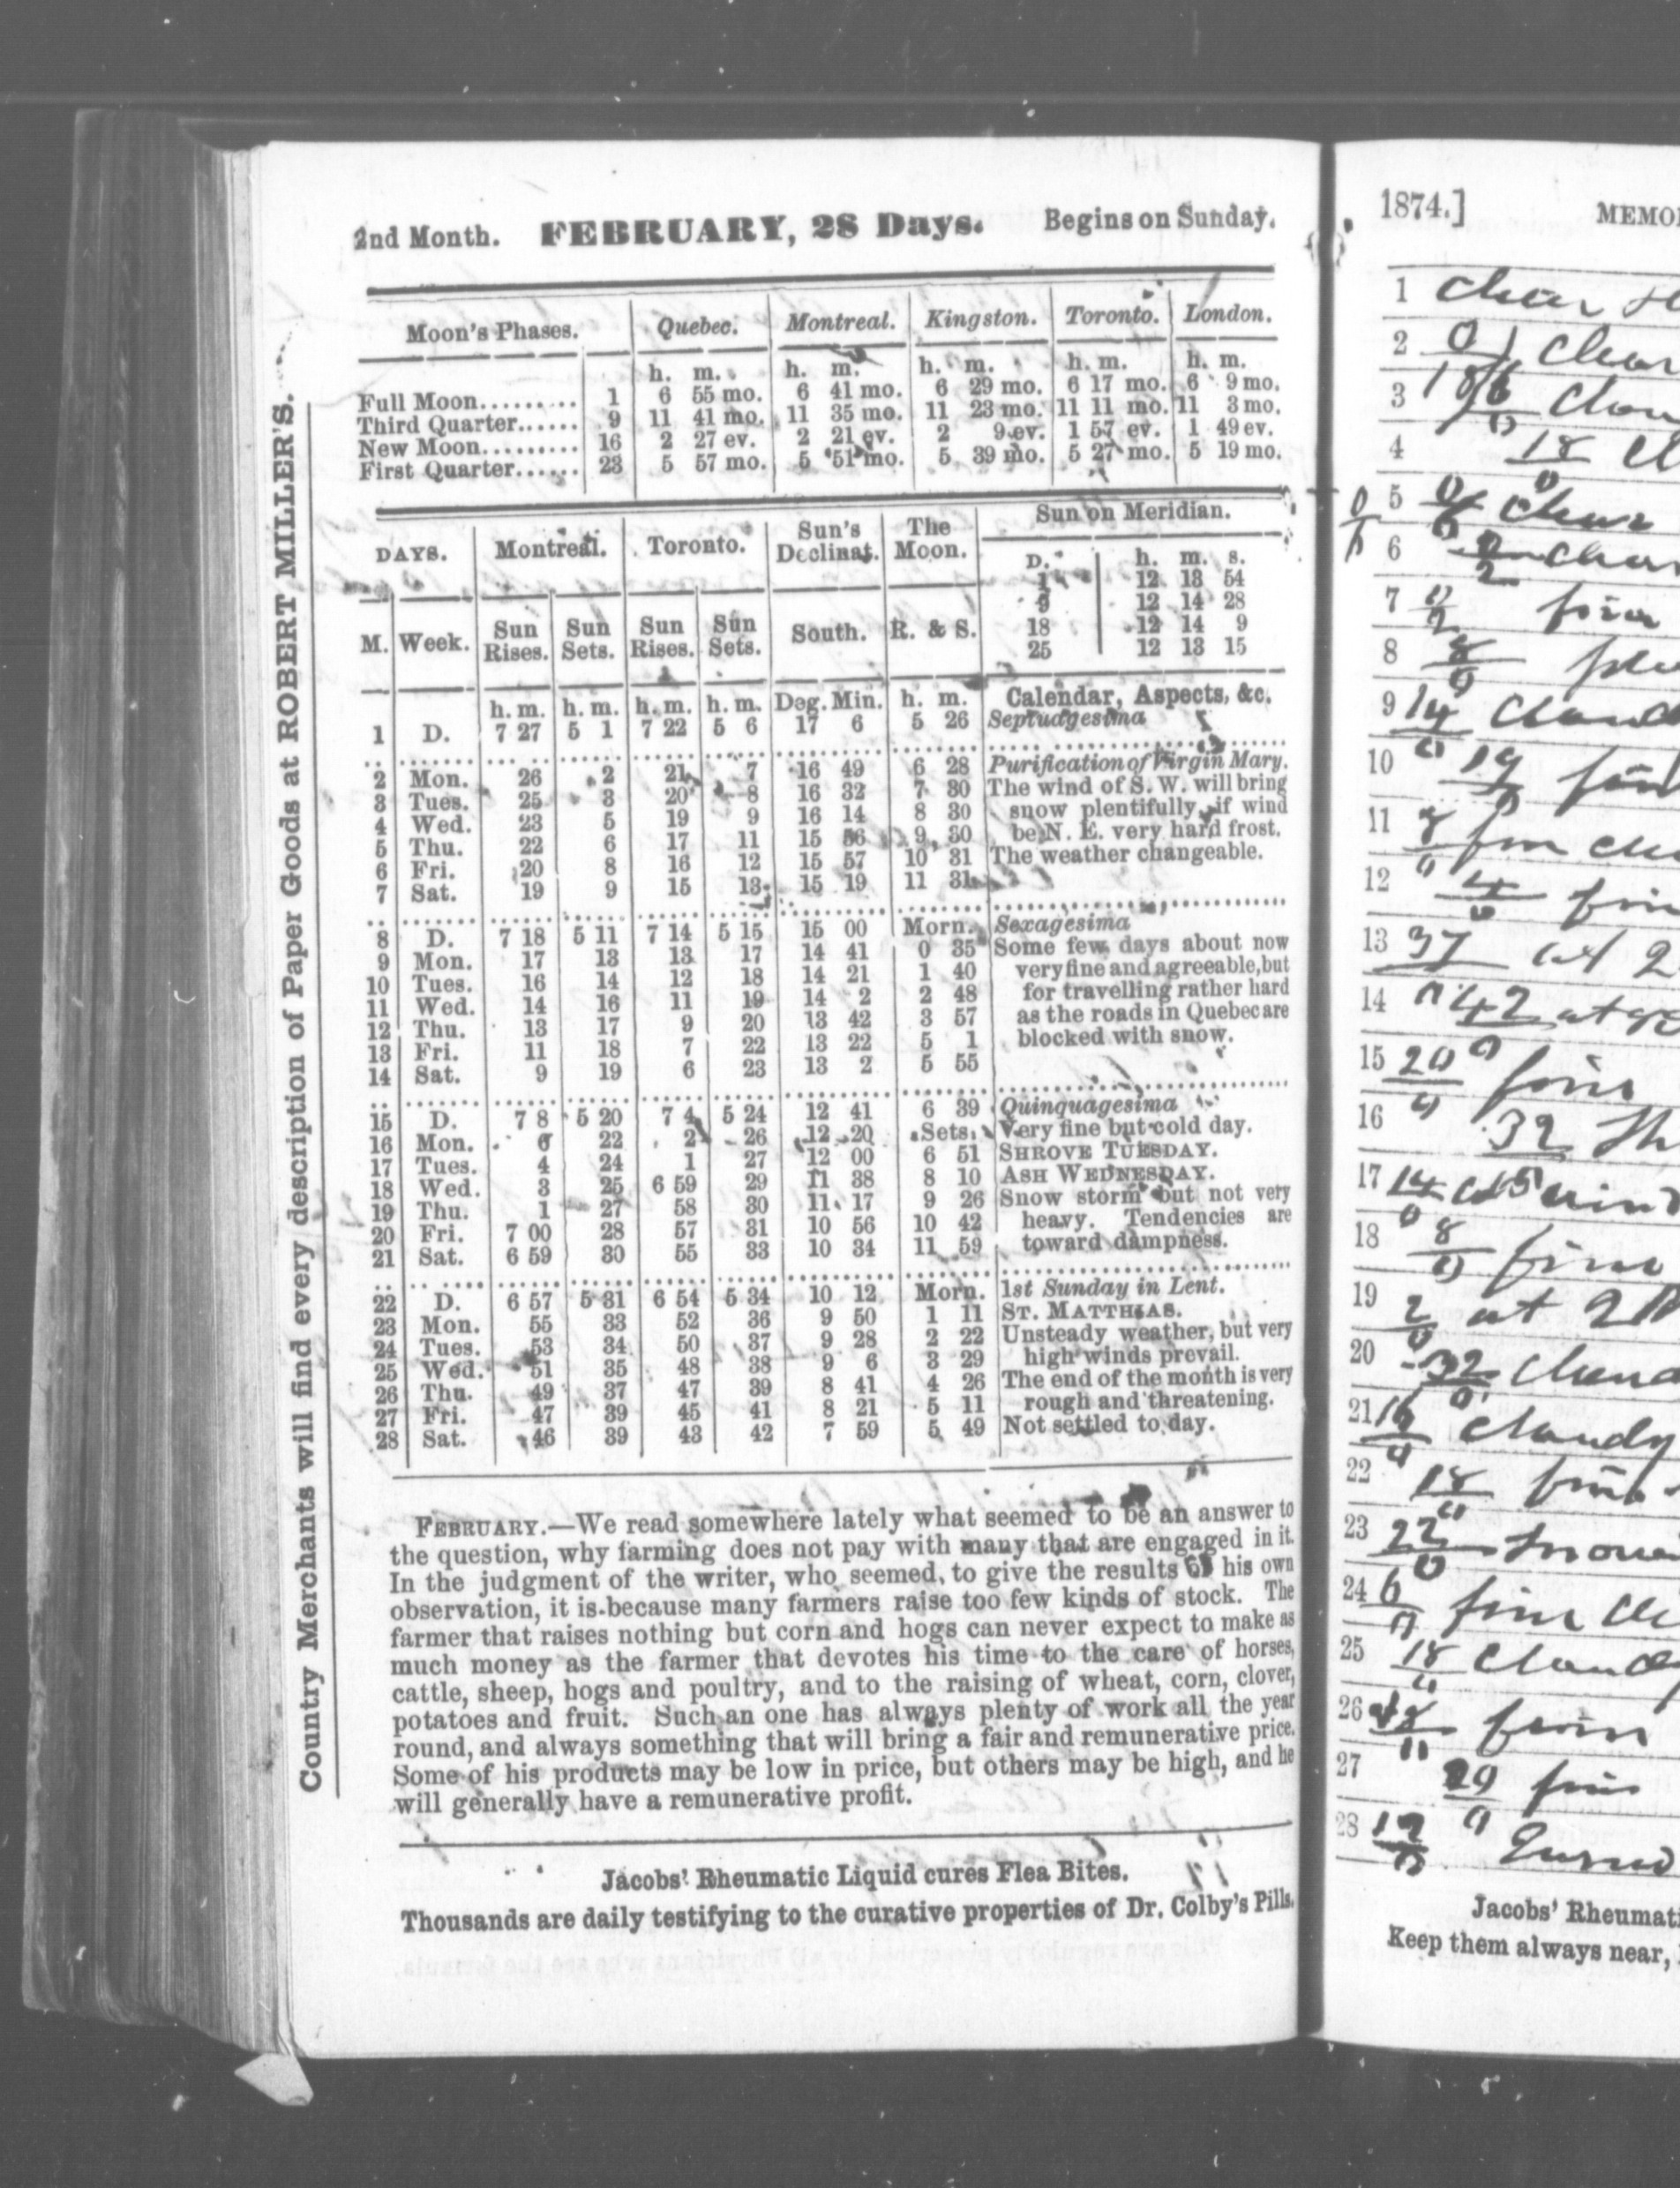 2nd Month. FEBRUARY, 28 Days. Begins on Sunday.
Moon's Phases. Quebec. Montreal. Kingston. Toronto. London.
h. m. h. m. h. m. h. m. h. m.
Full Moon.......... 1 6 55 mo. 6 41 mo. 6 29 mo. 6 17 mo. 6 9 mo.
Third Quarter...... 9 11 41 mo. 11 35 mo. 11 23 mo. 11 11 mo. 11 3 mo.
New Moon.......... 16 2 27 ev. 2 21 ev. 2 9 ev. 1 57 ev. 1 49 ev.
First Quarter...... 23 5 57 mo. 5 51 mo. 5 39 mo. 5 27 mo. 5 19 mo.
DAYS. Montreal. Toronto. Sun's Declinat. The Moon. Sun on Meridian.
D. h. m. s.
1 12 13 54
9 12 14 28
18 12 14 9
25 12 13 15
M. Week. Sun Rises. Sun Sets. Sun Rises. Sun Sets. South. R. & S.
h. m. h. m. h. m. h. m. Deg. Min. h. m. Calendar, Aspects, &c.
1 D. 7 27 5 1 7 22 5 6 17 6 5 26 Septuagesima
2 Mon. 26 2 21 7 16 49 6 28 Purification of Virgin Mary.
3 Tues. 25 3 20 8 16 32 7 30 The wind of S. W. will bring
4 Wed. 23 5 19 9 16 14 8 30 snow plentifully, if wind
5 Thu. 22 6 17 11 15 56 9 30 be N. E. very hard frost.
6 Fri. 20 8 16 12 15 57 10 31 The weather changeable.
7 Sat. 19 9 15 13 15 19 11 31
8 D. 7 18 5 11 7 14 5 15 15 00 Morn. Sexagesima
9 Mon. 17 13 13 17 14 41 0 35 Some few days about now
10 Tues. 16 14 12 18 14 21 1 40 very fine and agreeable, but
11 Wed. 14 16 11 19 14 2 2 48 for travelling rather hard
12 Thu. 13 17 9 20 13 42 3 57 as the roads in Quebec are
13 Fri. 11 18 7 22 13 22 5 1 blocked with snow.
14 Sat. 9 19 6 23 13 2 5 55
15 D. 7 8 5 20 7 4 5 24 12 41 6 39 Quinquagesima
16 Mon. 6 22 2 26 12 20 Sets. Very fine but cold day.
17 Tues. 4 24 1 27 12 00 6 51 SHROVE TUESDAY.
18 Wed. 3 25 6 59 29 11 38 8 10 ASH WEDNESDAY.
19 Thu. 1 27 58 30 11 17 9 26 Snow storm but not very
20 Fri. 7 00 28 57 31 10 56 10 42 heavy. Tendencies are
21 Sat. 6 59 30 55 33 10 34 11 59 toward dampness.
22 D. 6 57 5 31 6 54 5 34 10 12 Morn. 1st Sunday in Lent.
23 Mon. 55 33 52 36 9 50 1 11 ST. MATTHIAS.
24 Tues. 53 34 50 37 9 28 2 22 Unsteady weather, but very
25 Wed. 51 35 48 38 9 6 3 29 high winds prevail.
26 Thu. 49 37 47 39 8 41 4 26 The end of the month is very
27 Fri. 47 39 45 41 8 21 5 11 rough and threatening.
28 Sat. 46 39 43 42 7 59 5 49 Not settled to day.
FEBRUARY.—We read somewhere lately what seemed to be an answer to
the question, why farming does not pay with many that are engaged in it.
In the judgment of the writer, who seemed to give the results of his own
observation, it is because many farmers raise too few kinds of stock. The
farmer that raises nothing but corn and hogs can never expect to make as
much money as the farmer that devotes his time to the care of horses,
cattle, sheep, hogs and poultry, and to the raising of wheat, corn, clover,
potatoes and fruit. Such an one has always plenty of work all the year
round, and always something that will bring a fair and remunerative price.
Some of his products may be low in price, but others may be high, and he
will generally have a remunerative profit.
Jacobs' Rheumatic Liquid cures Flea Bites.
Thousands are daily testifying to the curative properties of Dr. Colby's Pills.
Country Merchants will find every description of Paper Goods at ROBERT MILLER'S.
1874.] MEMO
1 clear
2 clear
3
4 18
5 clear
6
7
8
9 14
10 19
11
12
13 37 at 2
14 42 at
15 20 fine
16 32
17 14
18 8 fine
19 2 at 2
20 32
21 16 cloudy
22 18 fine
23 22
24 6 fine
25 18
26
27 29 fine
28
Jacobs' Rheumati
Keep them always near,